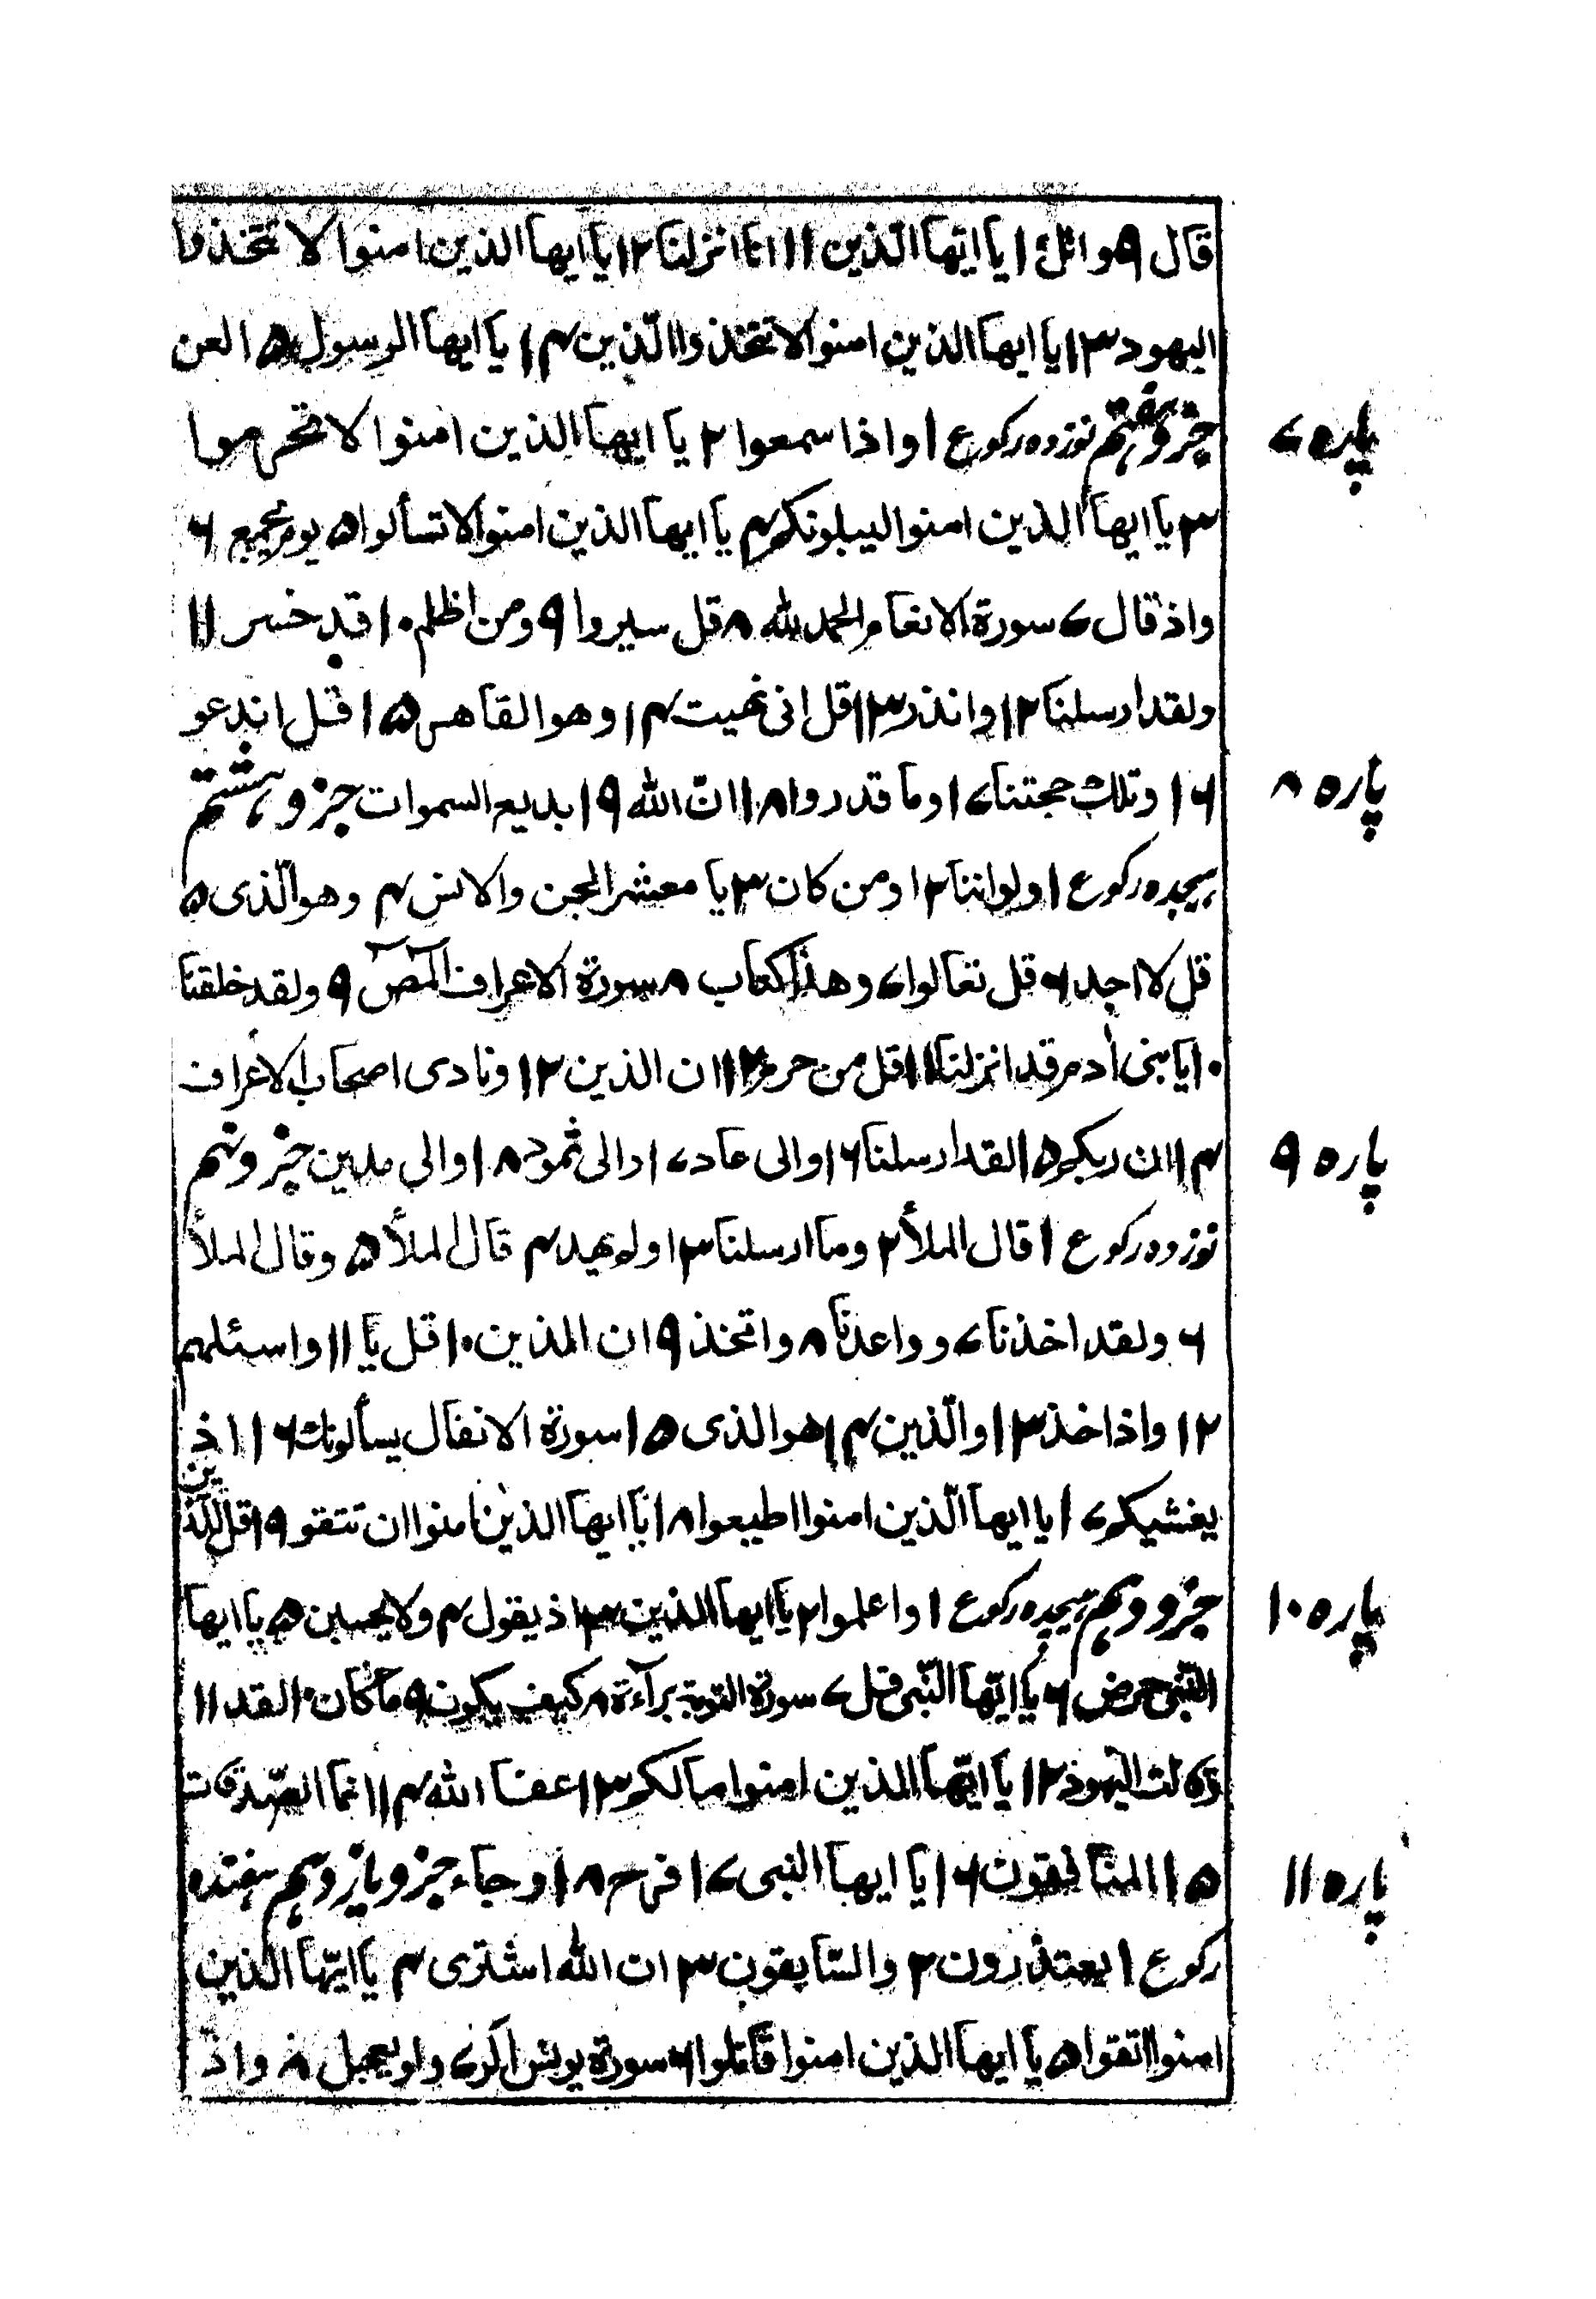 قال ۹ واتل ۱۰ یا ایّها الّذین ۱۱ انا انزلنا ۱۲ یا ایها الذین امنوا لا تتخذوا
الیهود ۱۳ یا ایها الذین امنوا لا تتخذوا الّذین ۱۴ یا ایها الرسول ۱۵ لعن
پاره ۷
جزو هفتم نوزده رکوع ۱ واذا سمعوا ۲ یا ایها الذین امنوا لا تحرموا
۳ یا ایها الذین امنوا لیبلونکم ۴ یا ایها الذین امنوا لا تسألوا ۵ یوم یجمع ۶
واذ قال ۷ سورة الانعام الحمد لله ۸ قل سیروا ۹ ومن اظلم ۱۰ قد خسر ۱۱
ولقد ارسلنا ۱۲ وانذر ۱۳ قل انی نهیت ۱۴ وهو القاهر ۱۵ قل اندعو
پاره ۸
۱۶ وتلک حجتنا ۱۷ وما قدروا ۱۸ انّ الله ۱۹ بدیع السموات جزو هشتم
هیجده رکوع ۱ ولو اننا ۲ اومن کان ۳ یا معشر الجن والانس ۴ وهو الّذی ۵
قل لا اجد ۶ قل تعالوا ۷ وهذا کتاب ۸ سورة الاعراف المٓصٓ ۹ ولقد خلقنا
۱۰ یا بنی ادم قد انزلنا ۱۱ قل من حرم ۱۲ ان الذین ۱۳ ونادی اصحاب الاعراف
پاره ۹
۱۴ ان ربکم ۱۵ لقد ارسلنا ۱۶ والی عاد ۱۷ والی ثمود ۱۸ والی مدین جزو نهم
نوزده رکوع ۱ قال الملأ ۲ وما ارسلنا ۳ اولم یهد ۴ قال الملأ ۵ وقال الملأ
۶ ولقد اخذنا ۷ وواعدنا ۸ واتخذ ۹ ان الذین ۱۰ قل یا ۱۱ واسئلهم
۱۲ واذ اخذ ۱۳ والّذین ۱۴ هو الذی ۱۵ سورة الانفال یسألونک ۱۶ اذ
یغشیکم ۱۷ یا ایها الّذین امنوا اطیعوا ۱۸ یا ایها الذین امنوا ان تتقو ۱۹ قل للذین
پاره ۱۰
جزو دهم هیجده رکوع ۱ واعلموا ۲ یا ایها الذین ۳ اذ یقول ۴ ولا یحسبن ۵ یا ایها
النّبی حرض ۶ یا ایّها النّبی قل ۷ سورة التوبة برآءة ۸ کیف یکون ۹ ما کان ۱۰ لقد ۱۱
وقالت الیهود ۱۲ یا ایّها الذین امنوا مالکم ۱۳ عفا الله ۱۴ انما الصّدقات
پاره ۱۱
۱۵ المنافقون ۱۶ یا ایها النبی ۱۷ فرح ۱۸ وجاء جزو یازدهم هفتده
رکوع ۱ یعتذرون ۲ والسّابقون ۳ ان الله اشتری ۴ یا ایّها الذین
امنوا اتقوا ۵ یا ایها الذین امنوا قاتلوا ۶ سورة یونس الر ۷ ولو یعجل ۸ واذ